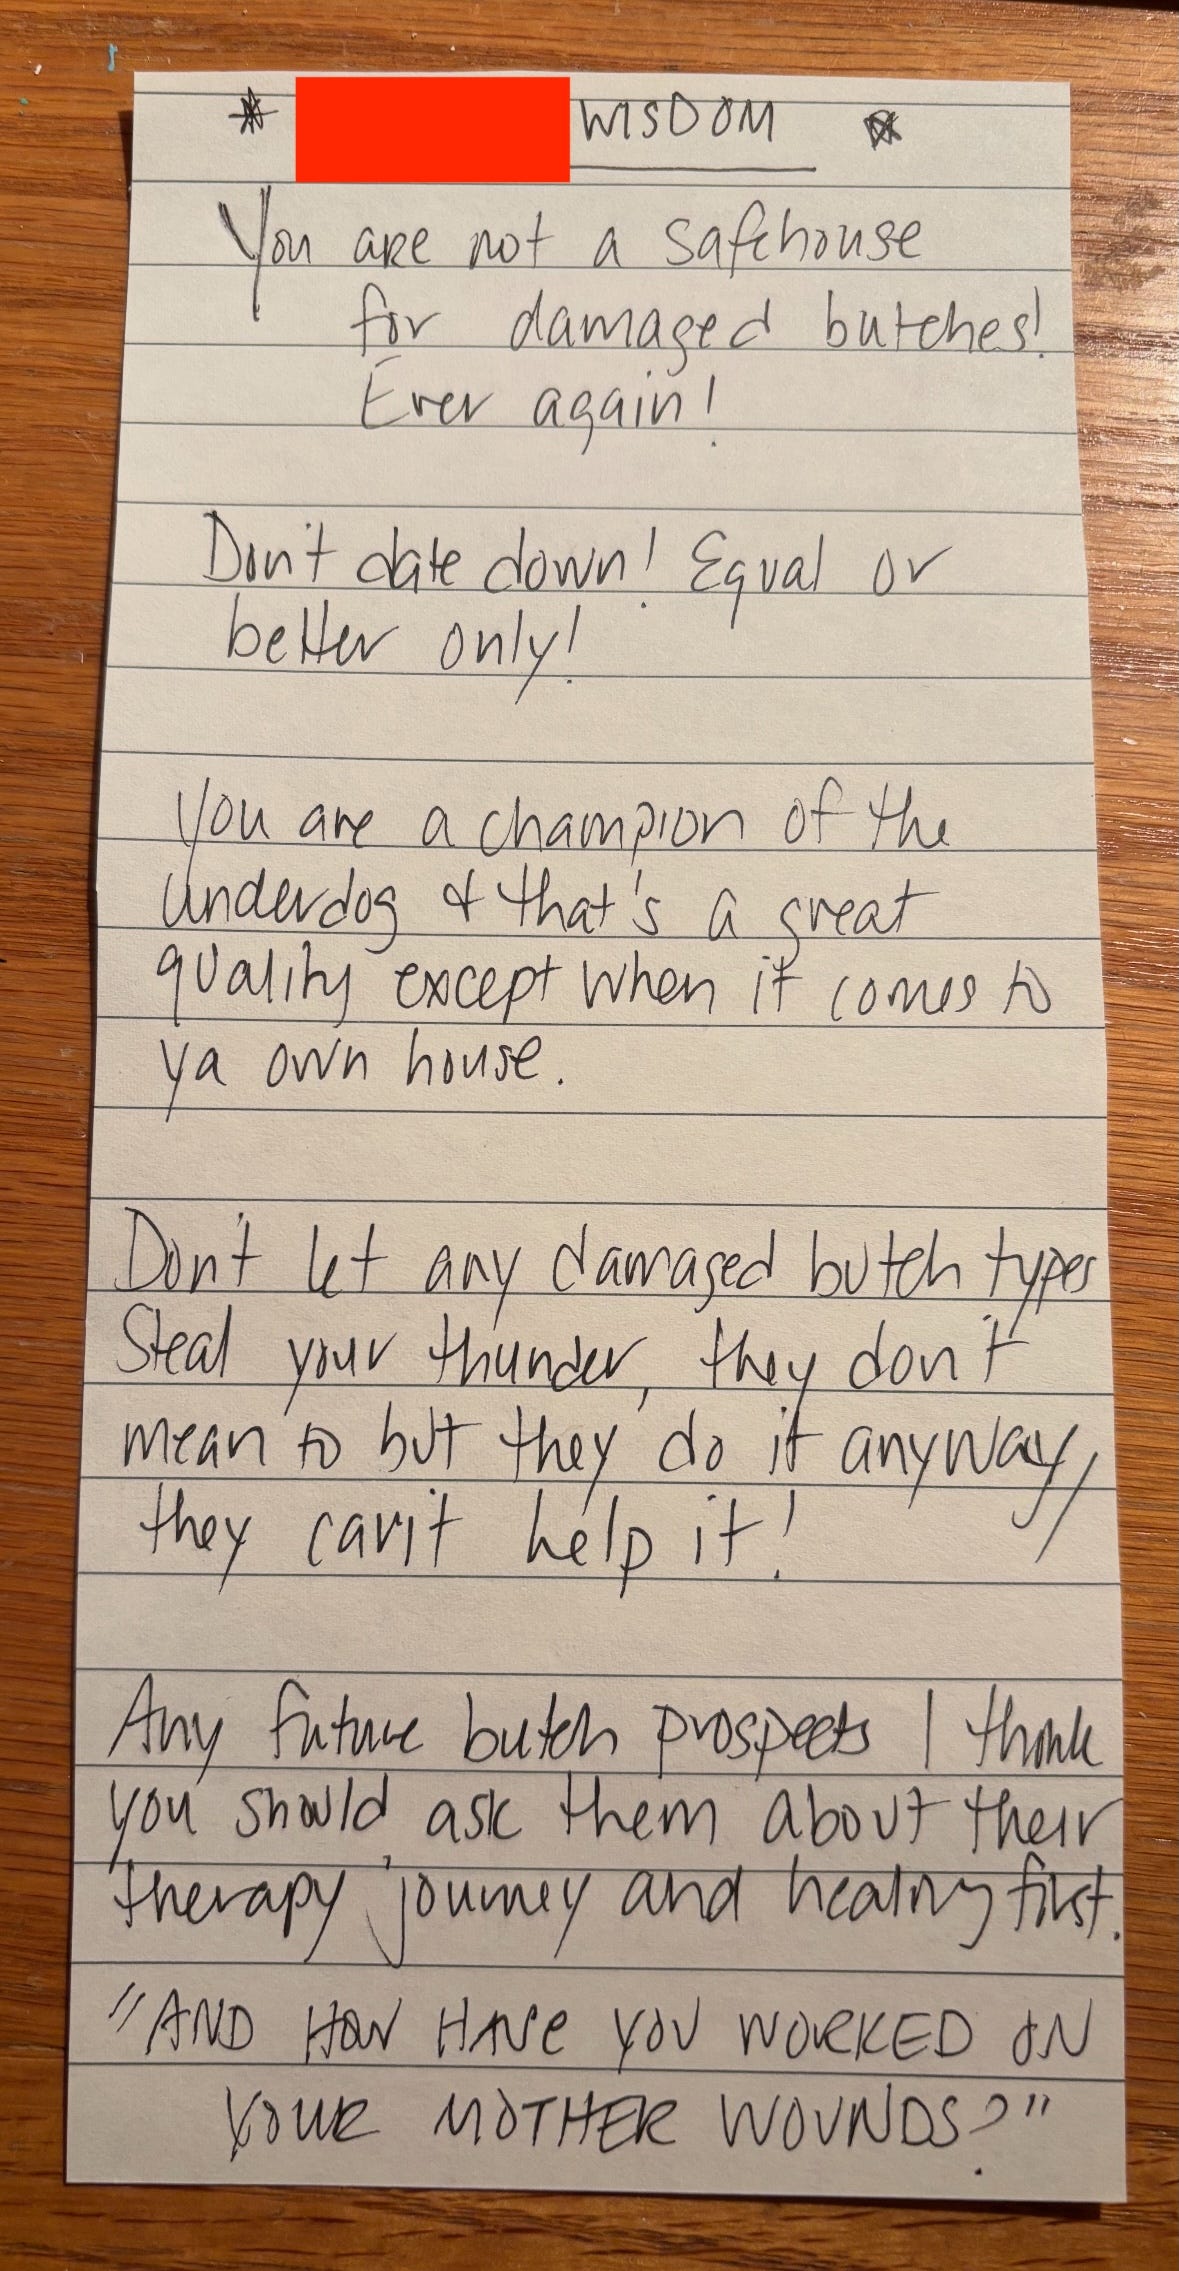 WISDOM
You are not a safehouse
for damaged butches!
Ever again!
Don't date down! Equal or
better only!
You are a champion of the
underdog & that's a great
quality except when it comes to
ya own house.
Don't let any damaged butch types
steal your thunder, they don't
mean to but they do it anyway,
they can't help it!
Any future butch prospects I think
you should ask them about their
therapy journey and healing first.
"AND HOW HAVE YOU WORKED ON
YOUR MOTHER WOUNDS?"